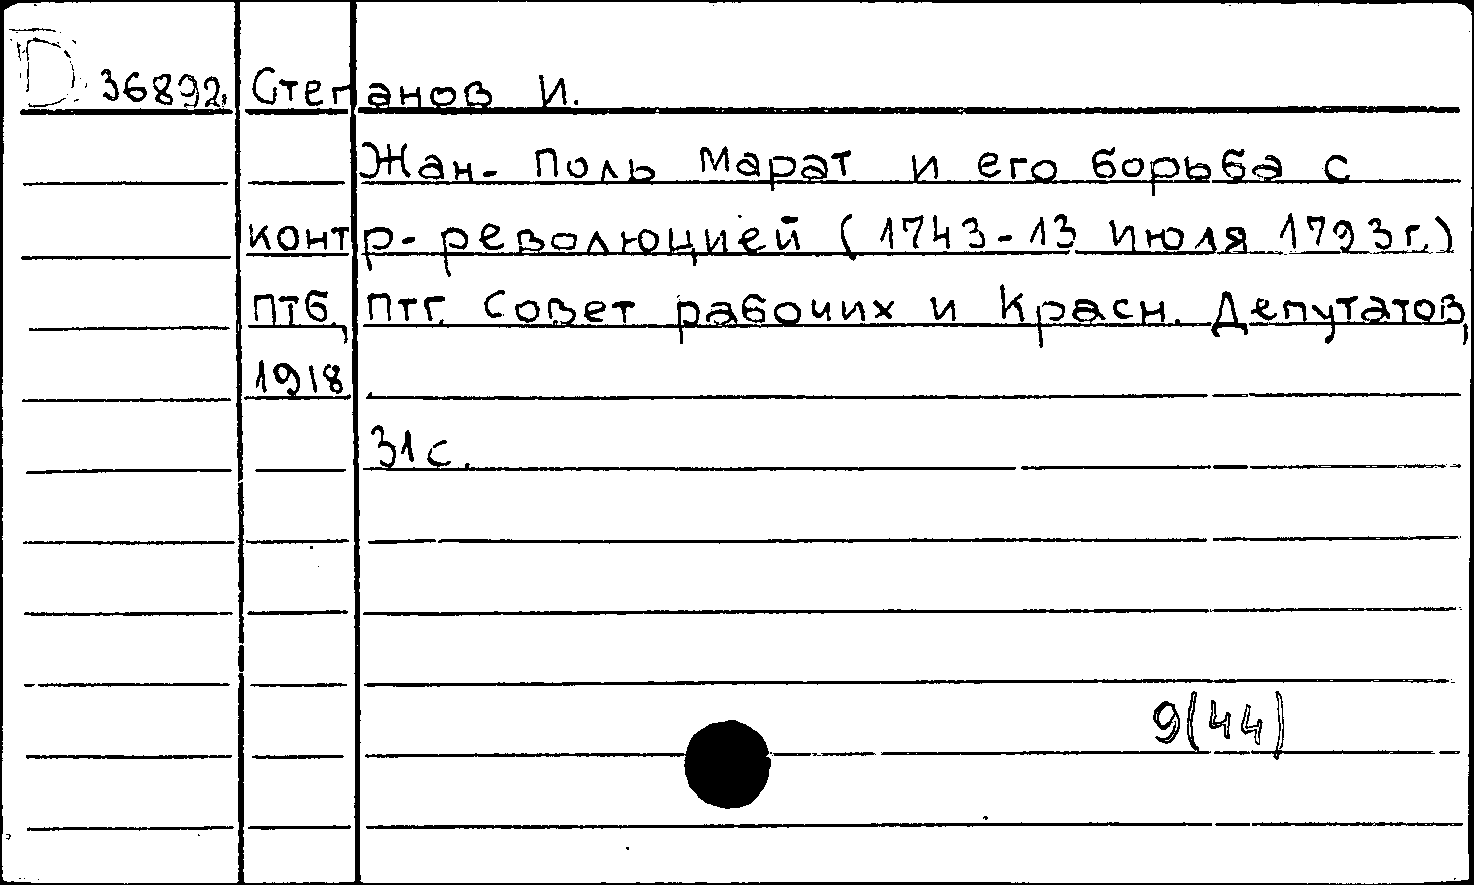 D 36892. Степанов И.
Жан-Поль Марат и его борьба с
контр-революцией (1743-13 июля 1793г.)
Птб., Птг. Совет рабочих и Красн. Депутатов,
1918.
31с.
9(44)